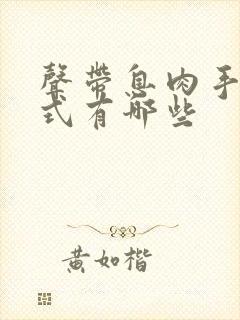 聲帶息肉手
式有哪些
黃如楷